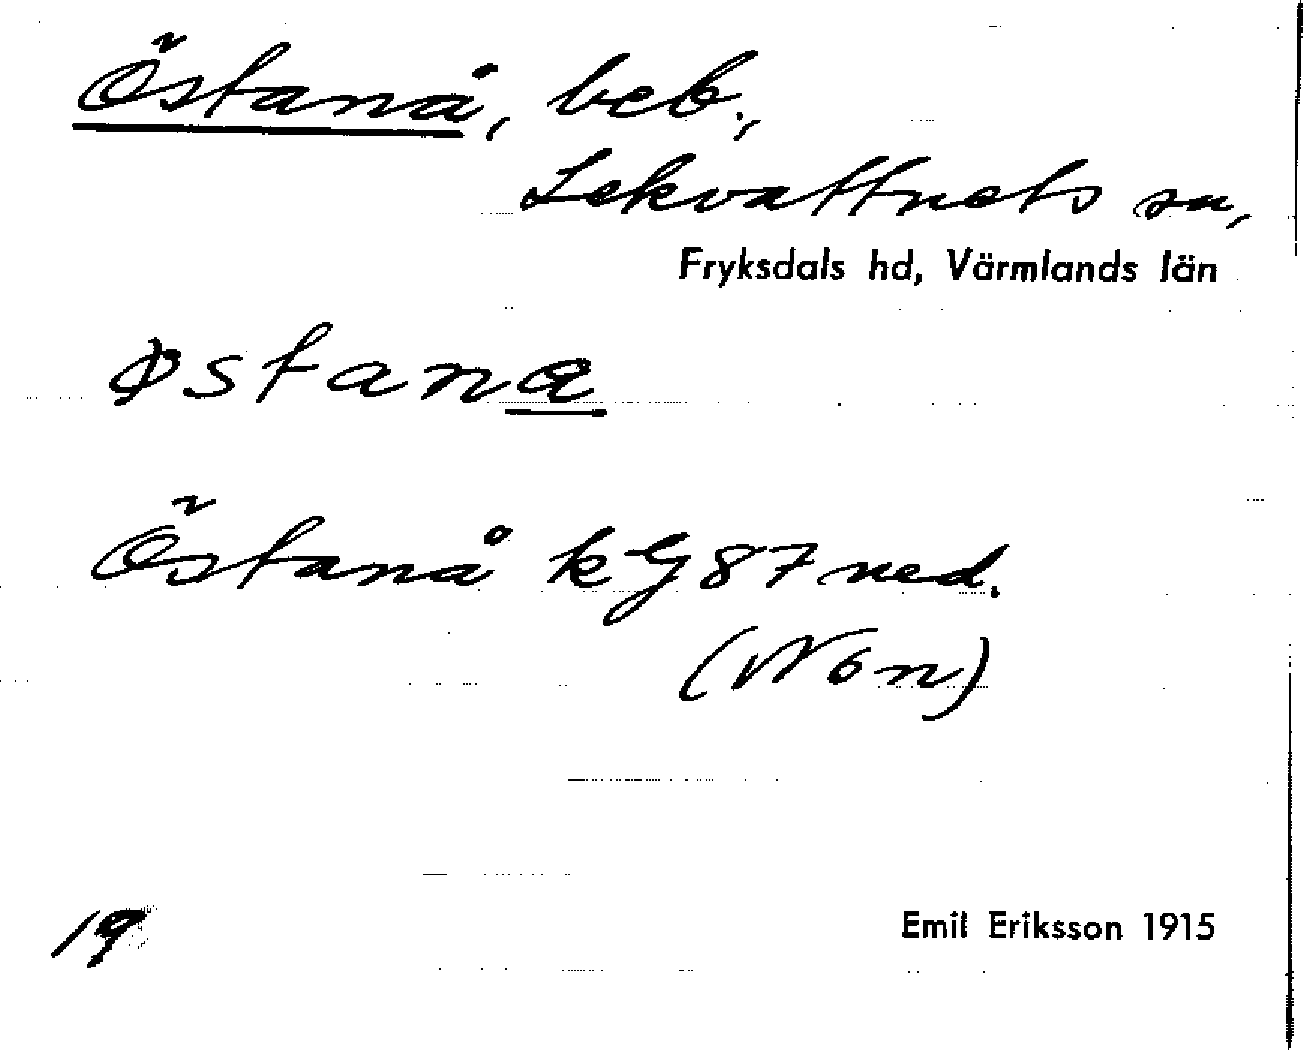 Östanå, beb.,
Lekvattnets sn,
Fryksdals hd, Värmlands län
østana
Östanå kG 87 ned.
(NV ön)
19
Emil Eriksson 1915